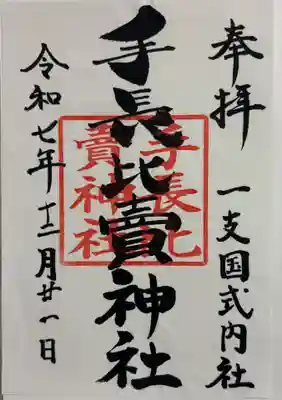 奉拝 一支国式内社
手長比賣神社
手長比
賣神社
令和七年十二月廿八日